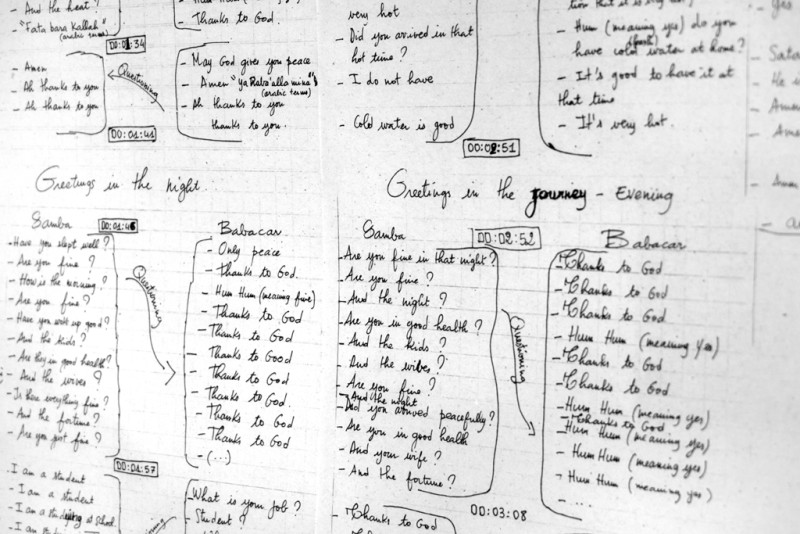 And the heat?
- "Fata bara Kallah"
(arabic terms)
00:01:34
- Amen
- Ah thanks to you
- Ah thanks to you
Questioning
00:01:41
- Thanks to God.
- May God gives you peace
- Amen "Ya Raba'alla mina"
(arabic terms)
- Ah thanks to you
thanks to you.
very hot
- Did you arrived in that
hot time?
- I do not have
- Cold water is good
00:02:51
- Hum (meaning yes) do you
have cold water at home?
(fresh)
- It's good to have it at
that time
- It's very hot.
Amen
Greetings in the night
Samba
00:01:46
- Have you slept well?
- Are you fine?
- How is the morning?
- Are you fine?
- Have you woke up good?
- And the kids?
- Are they in good health?
- And the wives?
- Is have everything fine?
- And the fortune?
- Are you just fine?
Questioning
Babacar
- Only peace
- Thanks to God.
- Hum Hum (meaning fine)
- Thanks to God
- Thanks to God
- Thanks to Good
- Thanks to God
- Thanks to God.
- Thanks to God
- Thanks to God
- (...)
00:01:57
- I am a student
- I am a student
- I am a studying at school.
- I am
- What is your job?
- Student?
Greetings in the journey - Evening
Samba
00:02:52
- Are you fine in that night?
- Are you fine?
- And the night?
- Are you in good health?
- And the kids?
- And the wives?
- Are you fine?
- And the night
- Did you arrived peacefully?
- Are you in good health
- And your wife?
- And the fortune?
Questioning
Babacar
- Thanks to God
- Thanks to God
- Thanks to God
- Hum Hum (meaning yes)
- Thanks to God
- Thanks to God
- Hum Hum (meaning yes)
- Thanks to God
- Hum Hum (meaning yes)
- Hum Hum (meaning yes)
- Hum Hum (meaning yes)
- ....
00:03:08
- Thanks to God